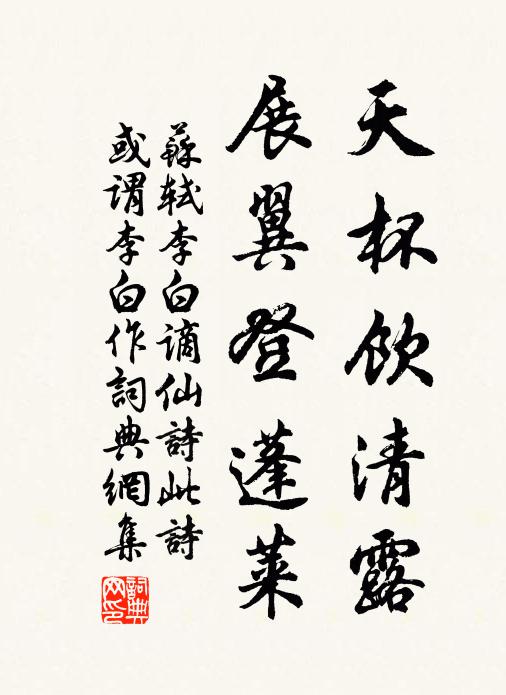 天杯飲清露
展翼登蓬莱
蘇軾李白謫仙詩此詩
或謂李白作詞典網集
詞典
网印